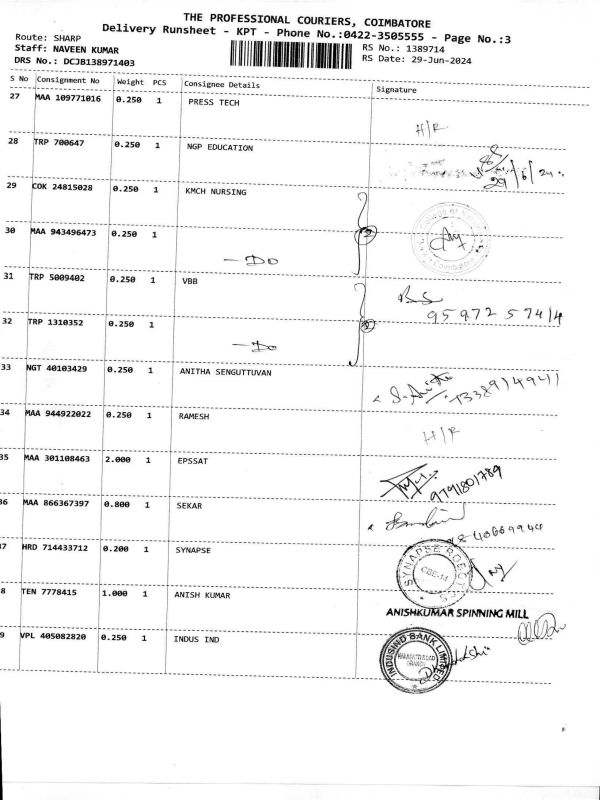 THE PROFESSIONAL COURIERS, COIMBATORE
Delivery Runsheet - KPT - Phone No.:0422-3505555 - Page No.:3
Route: SHARP
Staff: NAVEEN KUMAR RS No.: 1389714
DRS No.: DCJB138971403 RS Date: 29-Jun-2024
S No Consignment No Weight PCS Consignee Details Signature
27 MAA 109771016 0.250 1 PRESS TECH
H/R
28 TRP 700647 0.250 1 NGP EDUCATION
29/6/24
29 COK 24815028 0.250 1 KMCH NURSING
30 MAA 943496473 0.250 1
-Do
31 TRP 5009402 0.250 1 VBB
95972 57414
32 TRP 1310352 0.250 1
-Do
33 NGT 40103429 0.250 1 ANITHA SENGUTTUVAN
34 MAA 944922022 0.250 1 RAMESH
H/R
35 MAA 301108463 2.000 1 EPSSAT
9791801789
36 MAA 866367397 0.800 1 SEKAR
37 HRD 714433712 0.200 1 SYNAPSE
SYNAPSE ROBO
CBE-14
8 TEN 7778415 1.000 1 ANISH KUMAR
ANISHKUMAR SPINNING MILL
9 VPL 405082820 0.250 1 INDUS IND
INDUSIND BANK LIMITED